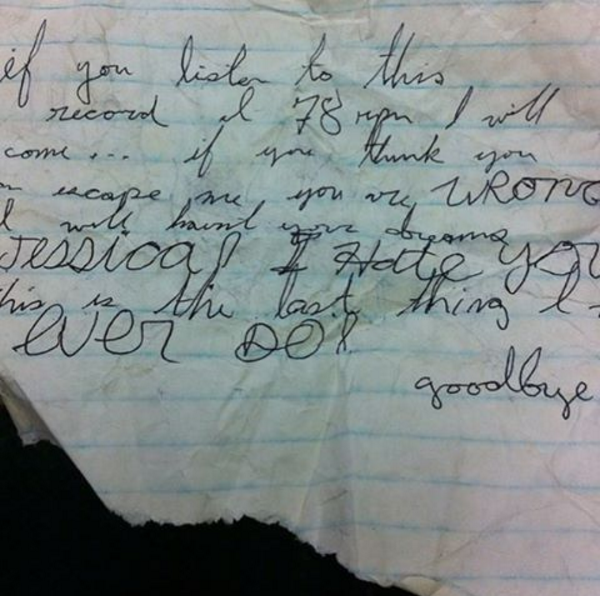 if you listen to this
record at 78 rpm I will
come... if you think you
escape me, you are WRONG
I will haunt your dreams
Jessica! I Hate you
this is the last thing I
ever DO!
goodbye